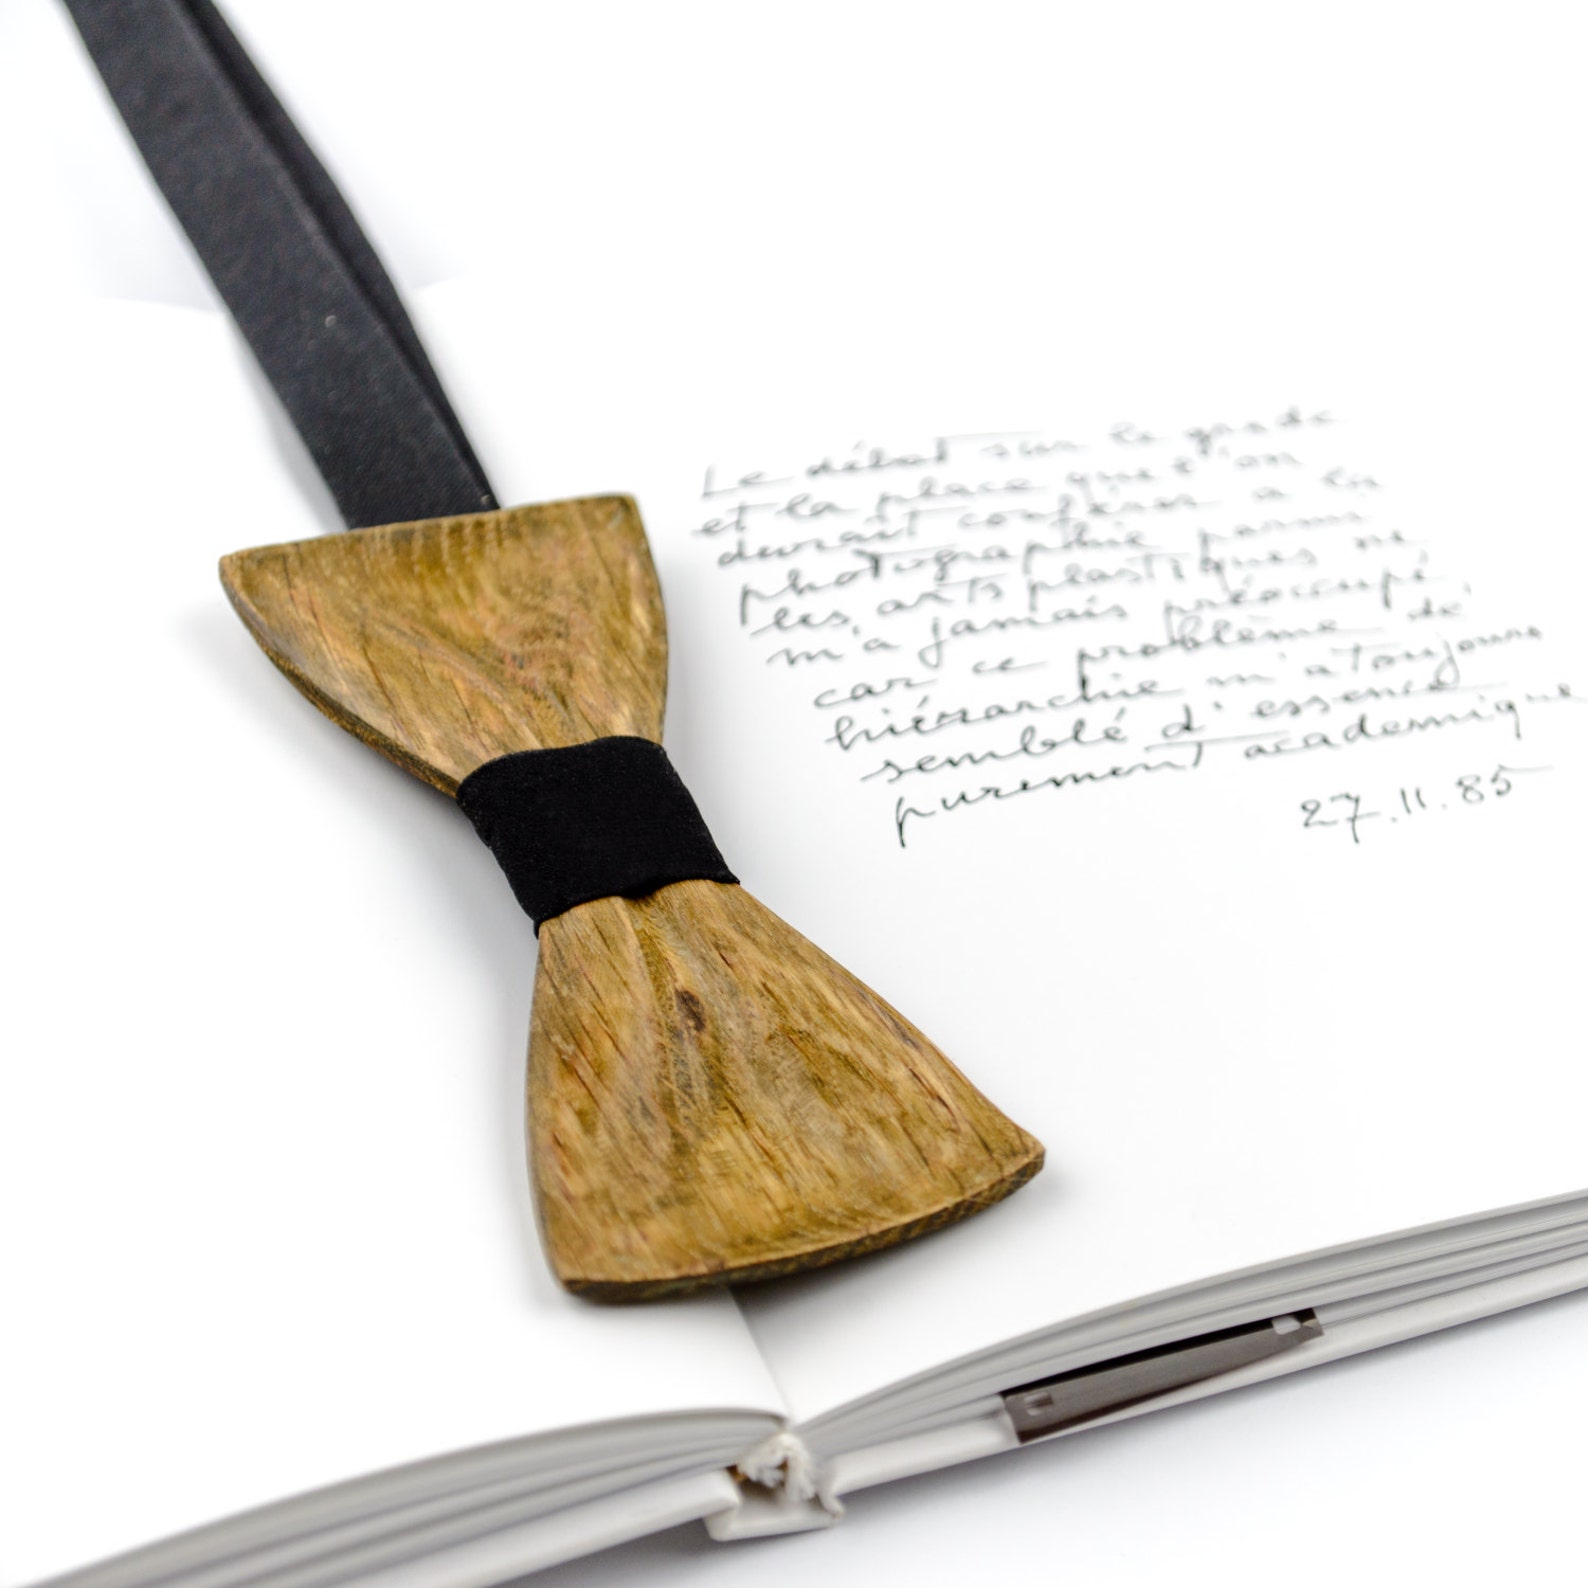 Le débat sur le grade
et la place que l'on
devrait conférer à la
photographie parmi
les arts plastiques ne
m'a jamais préoccupé,
car ce problème de
hiérarchie m'a toujours
semblé d'essence
purement académique
27.11.85